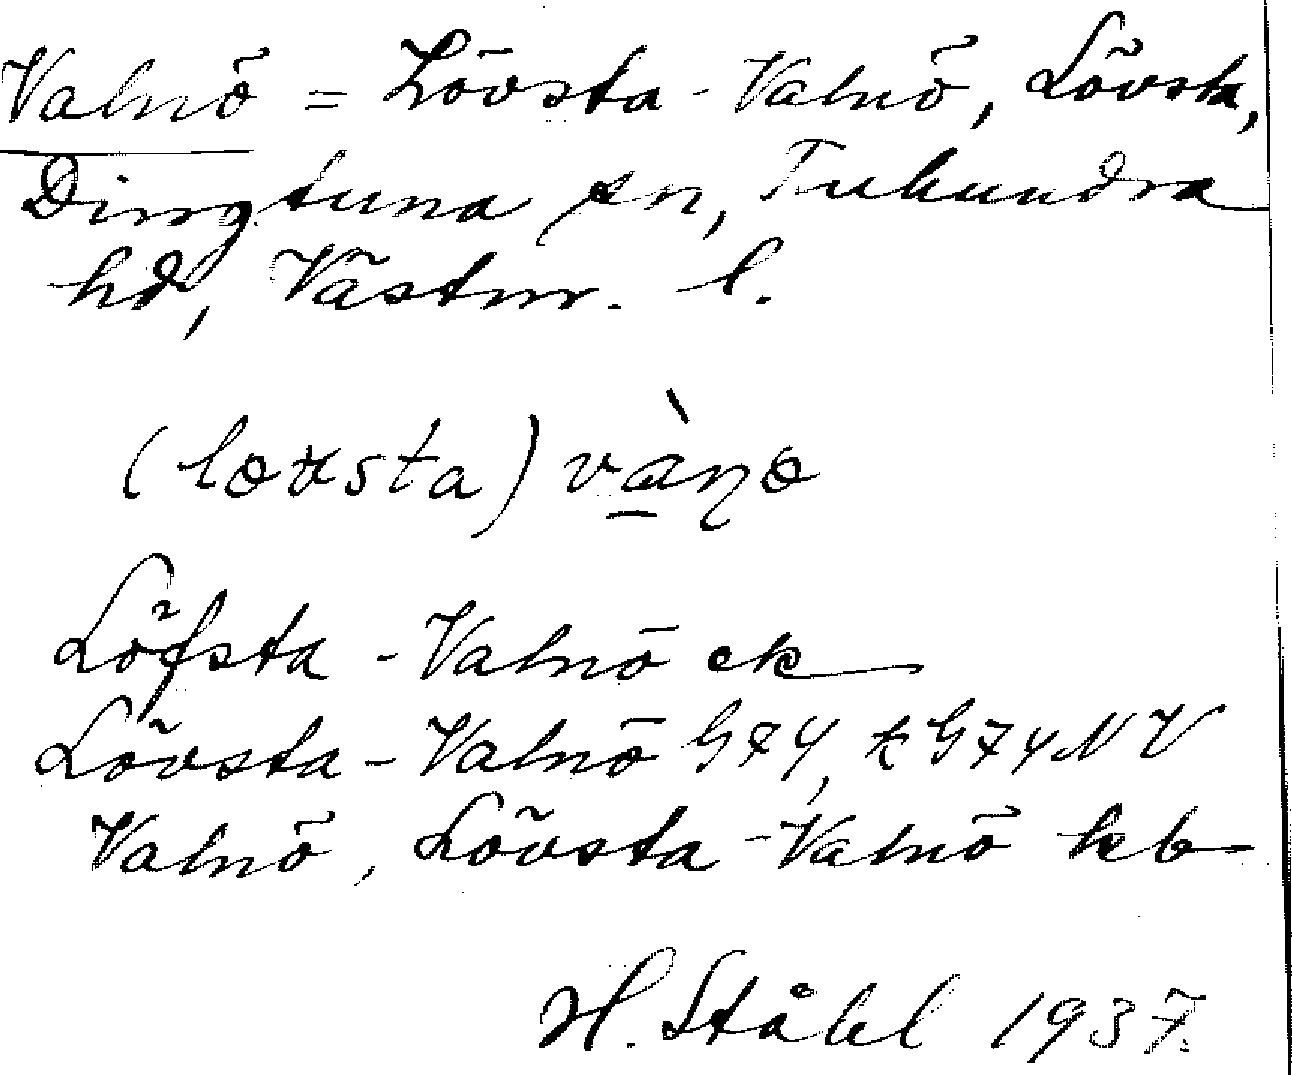 Valnö = Lövsta-Valnö, Lövsta,
Dingtuna sn, Tuhundra
hd, Västm. l.
(
) 
Löfsta-Valnö ek
Lövsta-Valnö G74, k G74 NV
Valnö, Lövsta-Valnö kb
H. Ståhl 1937.